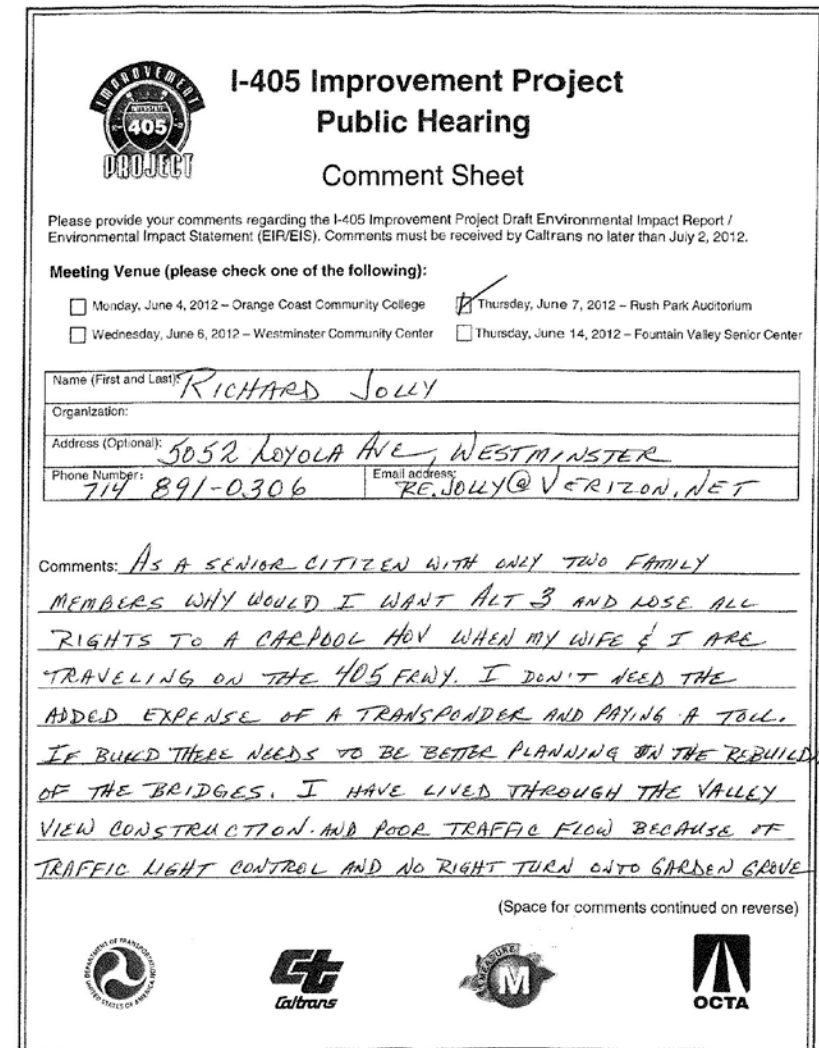 IMPROVEMENT
INTERSTATE
405
PROJECT
I-405 Improvement Project
Public Hearing
Comment Sheet
Please provide your comments regarding the I-405 Improvement Project Draft Environmental Impact Report /
Environmental Impact Statement (EIR/EIS). Comments must be received by Caltrans no later than July 2, 2012.
Meeting Venue (please check one of the following):
Monday, June 4, 2012 – Orange Coast Community College
Thursday, June 7, 2012 – Rush Park Auditorium
Wednesday, June 6, 2012 – Westminster Community Center
Thursday, June 14, 2012 – Fountain Valley Senior Center
Name (First and Last): RICHARD JOLLY
Organization:
Address (Optional): 5052 LOYOLA AVE, WESTMINSTER
Phone Number: 714 891-0306
Email address: RE.JOLLY@VERIZON.NET
Comments: AS A SENIOR CITIZEN WITH ONLY TWO FAMILY
MEMBERS WHY WOULD I WANT ALT 3 AND LOSE ALL
RIGHTS TO A CARPOOL HOV WHEN MY WIFE & I ARE
TRAVELING ON THE 405 FRWY. I DON'T NEED THE
ADDED EXPENSE OF A TRANSPONDER AND PAYING A TOLL.
IF BUILD THERE NEEDS TO BE BETTER PLANNING ON THE REBUILD
OF THE BRIDGES. I HAVE LIVED THROUGH THE VALLEY
VIEW CONSTRUCTION. AND POOR TRAFFIC FLOW BECAUSE OF
TRAFFIC LIGHT CONTROL AND NO RIGHT TURN ONTO GARDEN GROVE
(Space for comments continued on reverse)
DEPARTMENT OF TRANSPORTATION
UNITED STATES OF AMERICA
Ct
Caltrans
MEASURE
M
OCTA